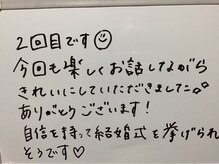 2回目です☺
今回も楽しくお話しながら
きれいにしていただきました。
ありがとうございます!
自信を持って結婚式を挙げられ
そうです♡